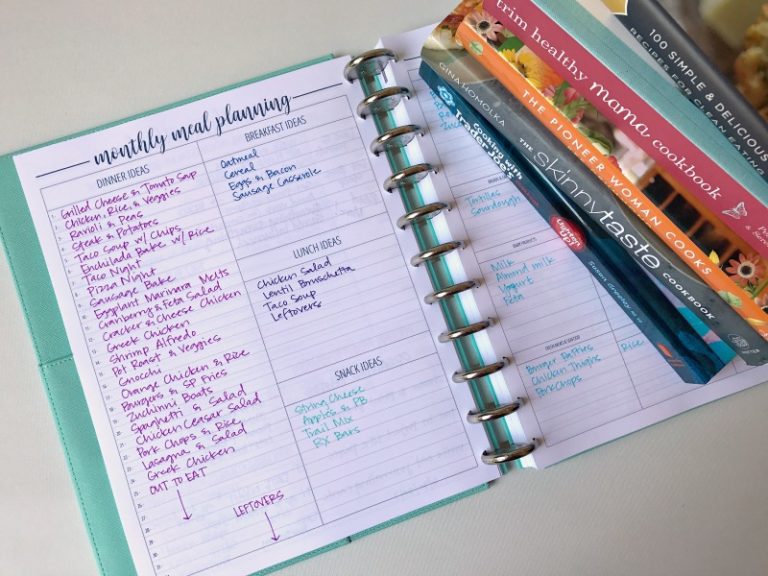 monthly meal planning
DINNER IDEAS
Grilled Cheese & Tomato Soup
Chicken, Rice, & Veggies
Ravioli & Peas
Steak & Potatoes
Taco Soup w/ Chips
Enchilada Bake w/ Rice
Taco Night
Pizza Night
Sausage Bake
Eggplant Marinara Melts
Cranberry & Feta Salad
Cracker & Cheese Chicken
Greek Chicken
Shrimp Alfredo
Pot Roast & Veggies
Gnocchi
Orange Chicken & Rice
Burgers & SP Fries
Zucchini Boats
Spaghetti & Salad
Chicken Ceasar Salad
Pork Chops & Rice
Lasagna & Salad
Greek Chicken
OUT TO EAT
LEFTOVERS
BREAKFAST IDEAS
Oatmeal
Cereal
Eggs & Bacon
Sausage Casserole
LUNCH IDEAS
Chicken Salad
Lentil Bruschetta
Taco Soup
Leftovers
SNACK IDEAS
String Cheese
Apples & PB
Trail Mix
RX Bars
Tortillas
Sourdough
Milk
Almond milk
Yogurt
Feta
Burger Patties
Chicken Thighs
Pork Chops
Rice
Cooking with
Trader Joe's
GINA HOMOLKA
THE skinnytaste COOKBOOK
THE PIONEER WOMAN COOKS
trim healthy mama cookbook
100 SIMPLE & DELICIOUS
RECIPES FOR CLEAN EATING